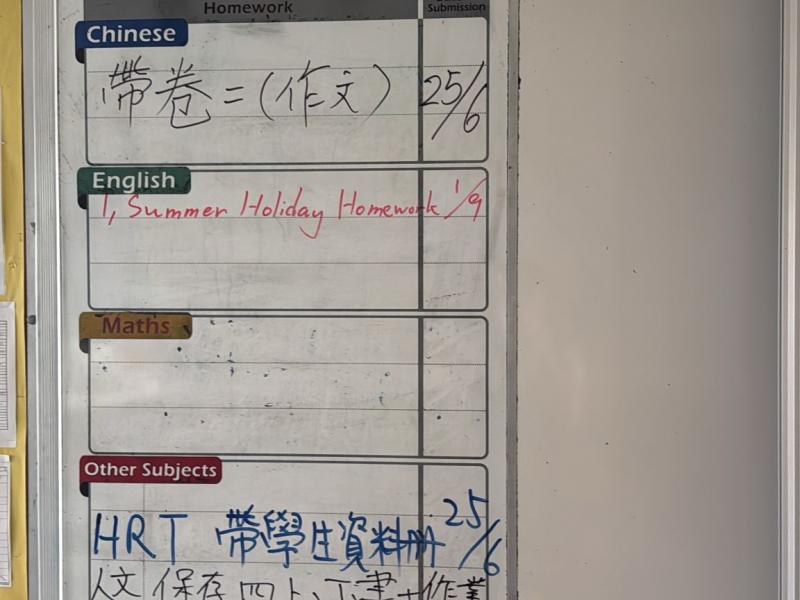 Homework
Submission
Chinese
帶卷二(作文) 25/6
English
1, Summer Holiday Homework 1/9
Maths
Other Subjects
HRT 帶學生資料册 25/6
人文 保存四上、下書+作業